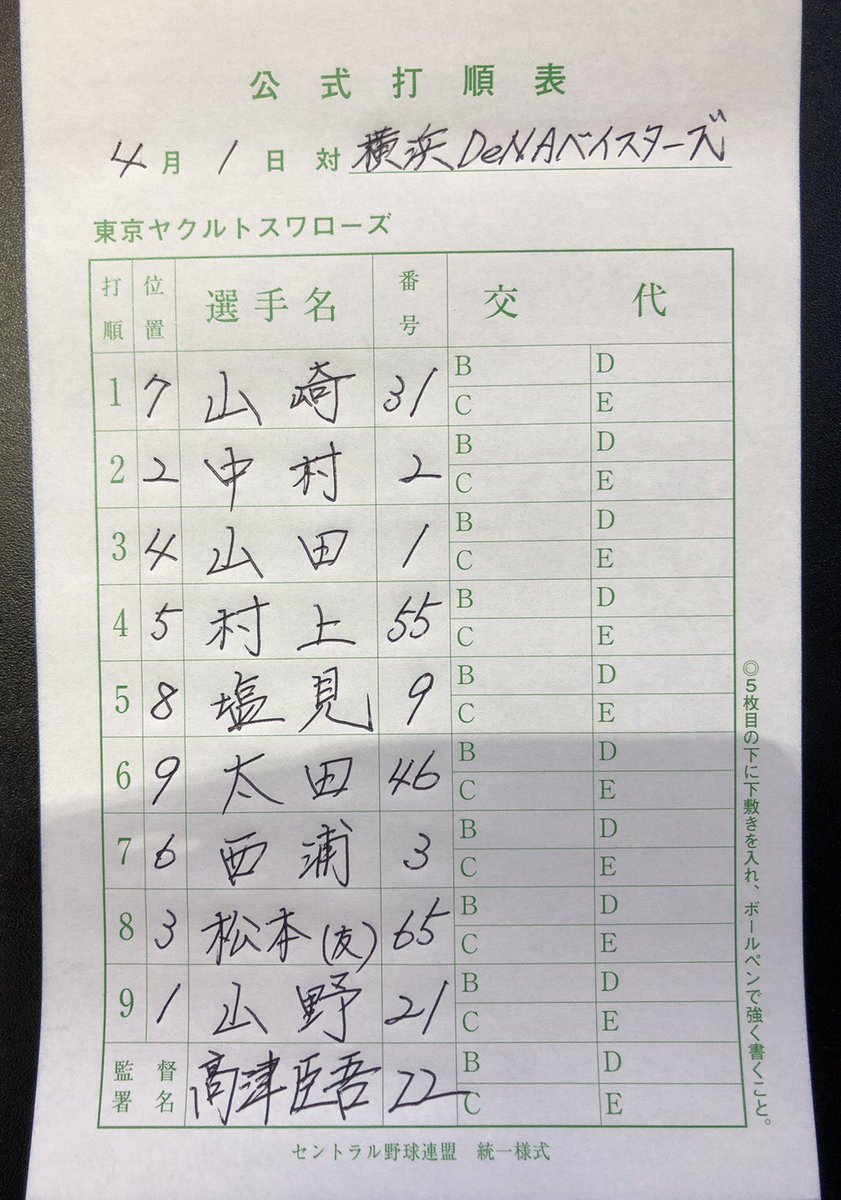 公式打順表
4月1日対 横浜DeNAベイスターズ
東京ヤクルトスワローズ
打順 位置 選手名 番号 交代
1 7 山崎 31 B D C E
2 2 中村 2 B D C E
3 4 山田 1 B D C E
4 5 村上 55 B D C E
5 8 塩見 9 B D C E
6 9 太田 46 B D C E
7 6 西浦 3 B D C E
8 3 松本(友) 65 B D C E
9 1 山野 21 B D C E
監督署名 高津臣吾 22 B D C E
◎5枚目の下に下敷きを入れ、ボールペンで強く書くこと。
セントラル野球連盟 統一様式